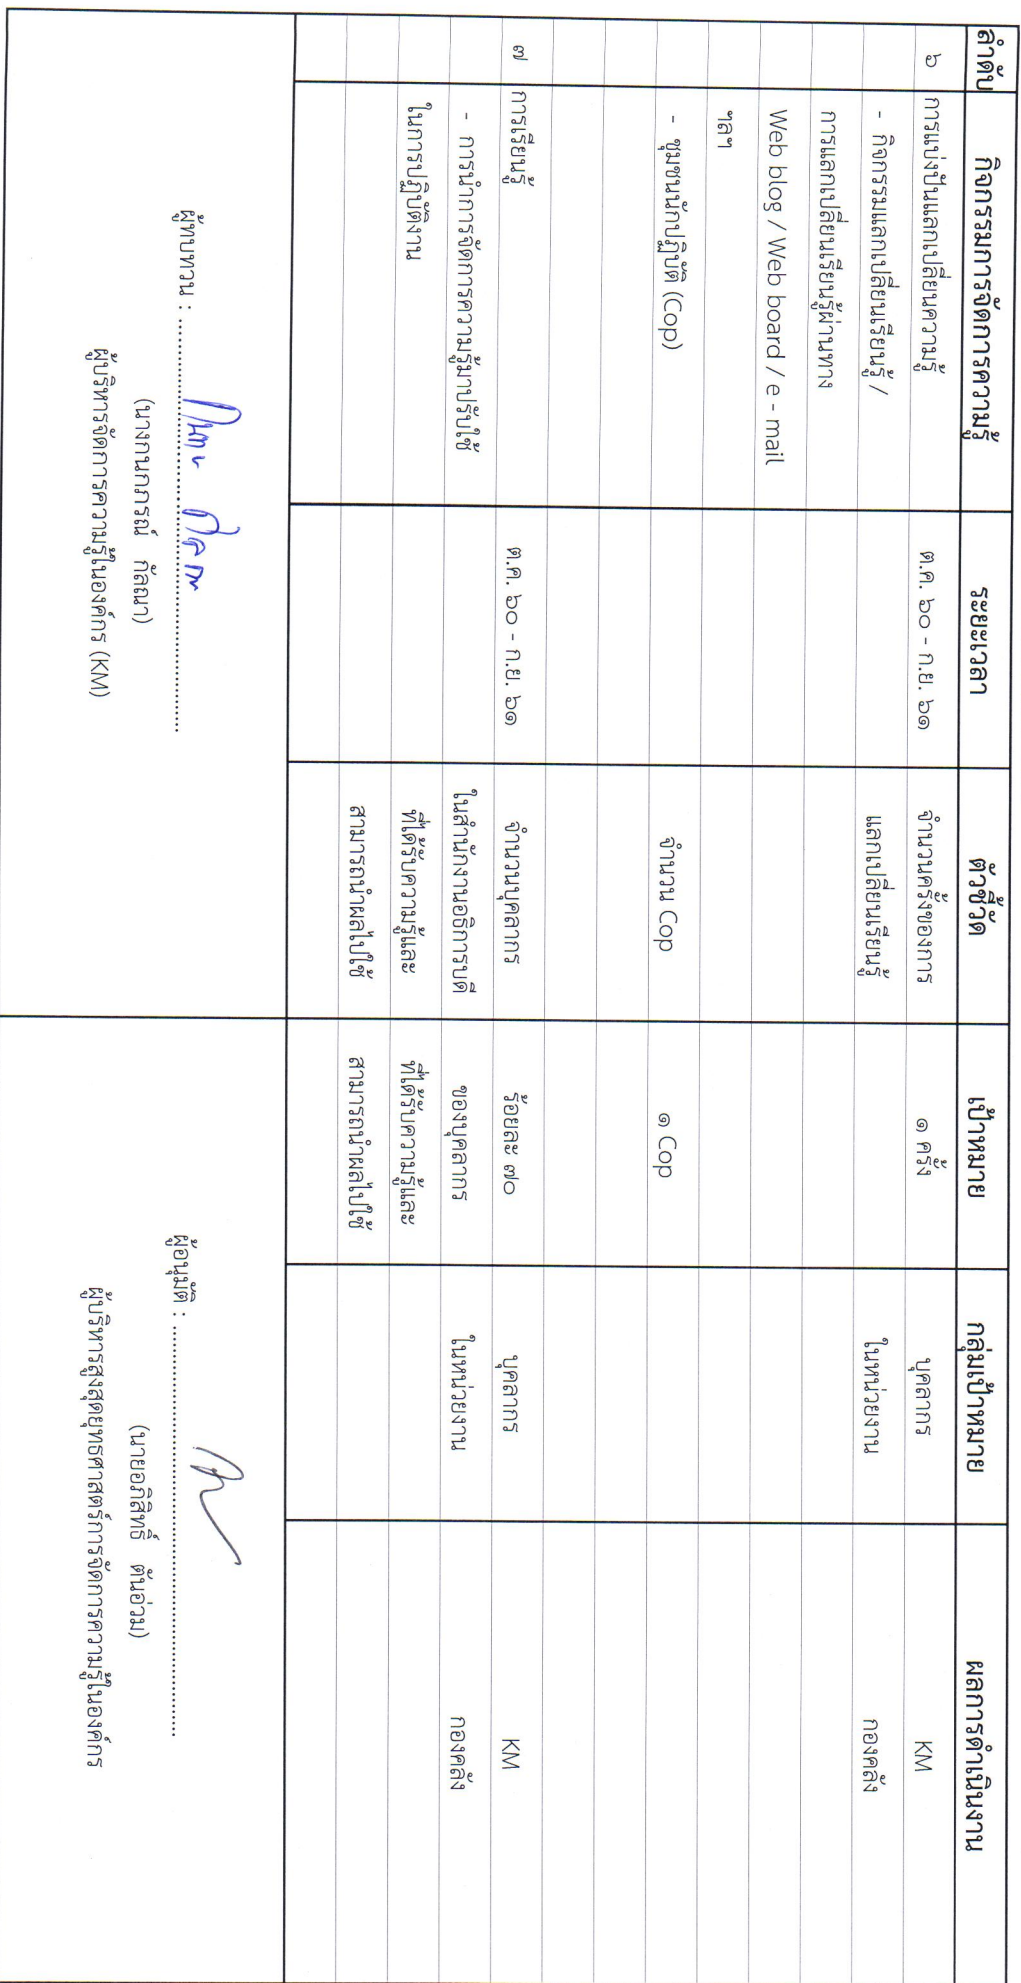 ลำดับ กิจกรรมการจัดการความรู้ ระยะเวลา ตัวชี้วัด เป้าหมาย กลุ่มเป้าหมาย ผลการดำเนินงาน
๖ การแบ่งปันแลกเปลี่ยนความรู้ ต.ค. ๖๐ - ก.ย. ๖๑ จำนวนครั้งของการ ๑ ครั้ง บุคลากร KM
- กิจกรรมแลกเปลี่ยนเรียนรู้ / แลกเปลี่ยนเรียนรู้ ในหน่วยงาน กองคลัง
การแลกเปลี่ยนเรียนรู้ผ่านทาง
Web blog / Web board / e - mail
ฯลฯ
- ชุมชนนักปฏิบัติ (Cop) จำนวน Cop ๑ Cop
๗ การเรียนรู้ ต.ค. ๖๐ - ก.ย. ๖๑ จำนวนบุคลากร ร้อยละ ๗๐ บุคลากร KM
- การนำการจัดการความรู้มาปรับใช้ ในสำนักงานอธิการบดี ของบุคลากร ในหน่วยงาน กองคลัง
ในการปฏิบัติงาน ที่ได้รับความรู้และ ที่ได้รับความรู้และ
สามารถนำผลไปใช้ สามารถนำผลไปใช้
ผู้ทบทวน : ........................................
(นางกนกภรณ์ กัลณา)
ผู้บริหารจัดการความรู้ในองค์กร (KM)
ผู้อนุมัติ : ........................................
(นายอภิสิทธิ์ ตันอ่วม)
ผู้บริหารสูงสุดยุทธศาสตร์การจัดการความรู้ในองค์กร